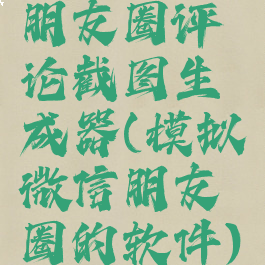 朋友圈评
论截图生
成器(模拟
微信朋友
圈的软件)